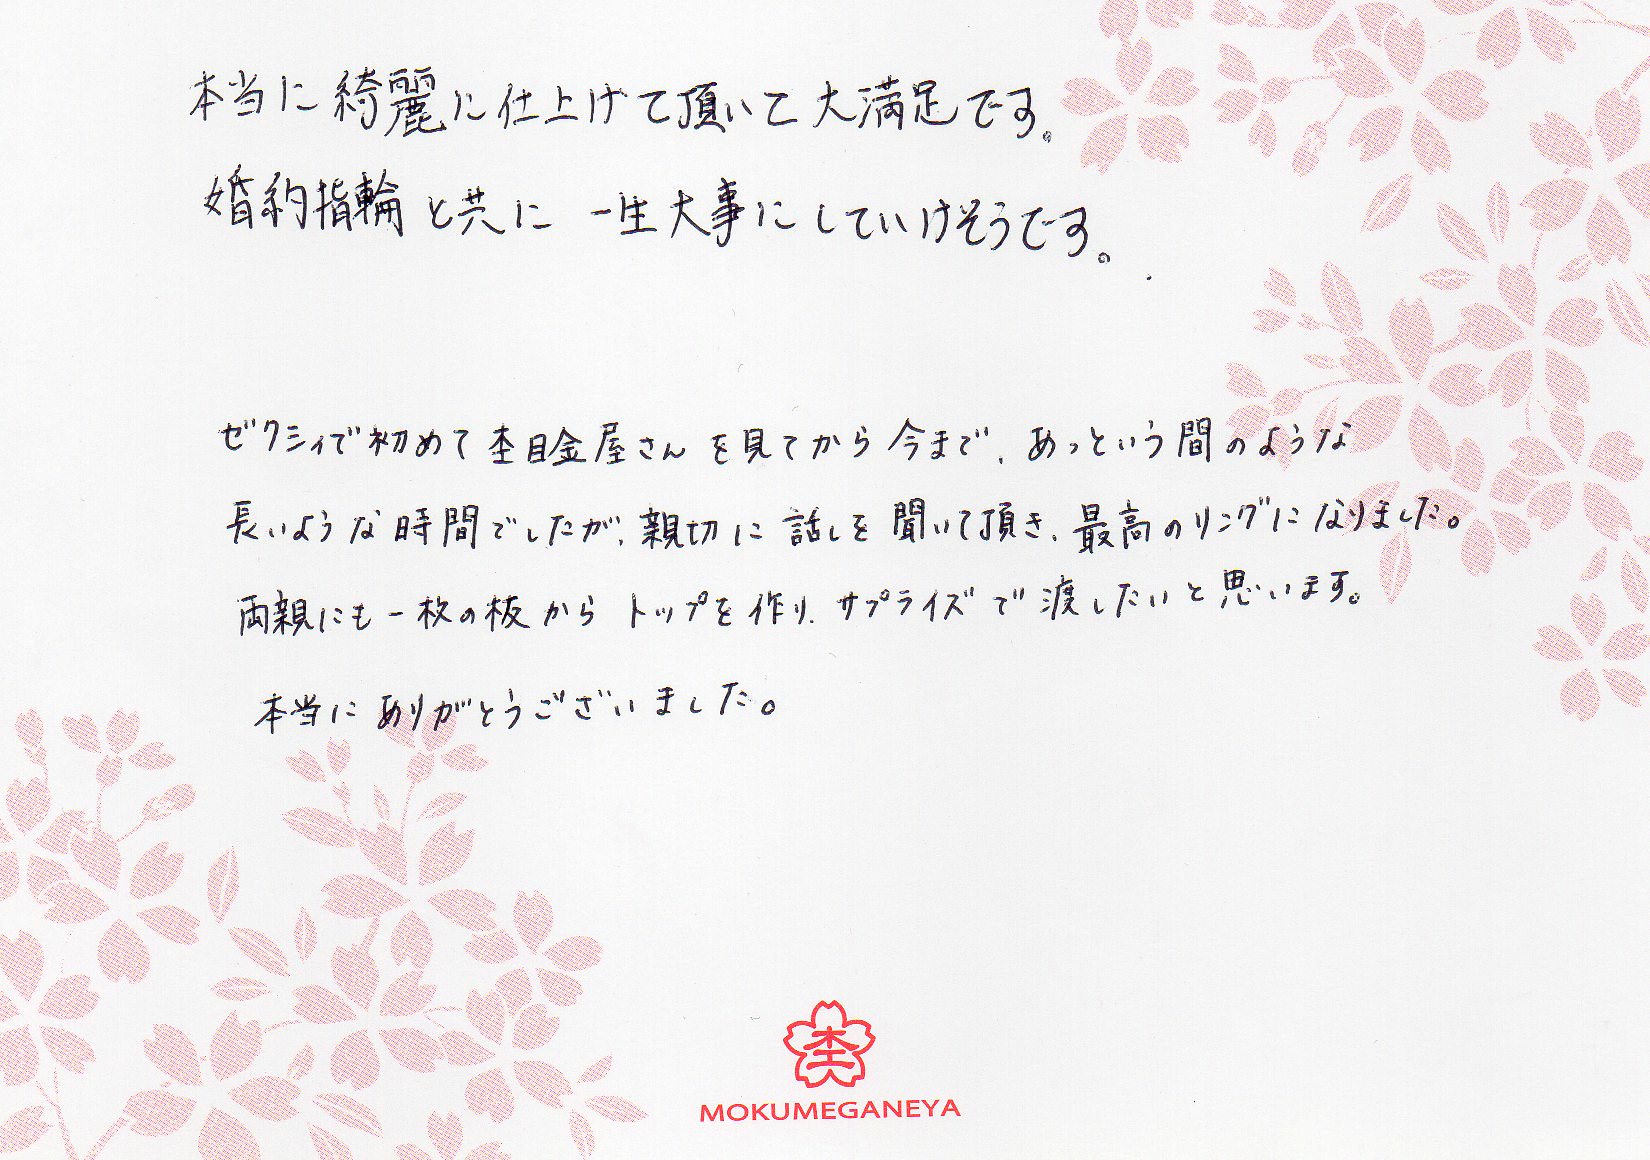 本当に綺麗に仕上げて頂いて大満足です。
婚約指輪と共に 一生大事にしていけそうです。
ゼクシィで初めて杢目金屋さんを見てから今まで、あっという間のような
長いような時間でしたが、親切に話しを聞いて頂き、最高のリングになりました。
両親にも一枚の板からトップを作り、サプライズで渡したいと思います。
本当にありがとうございました。
杢
MOKUMEGANEYA